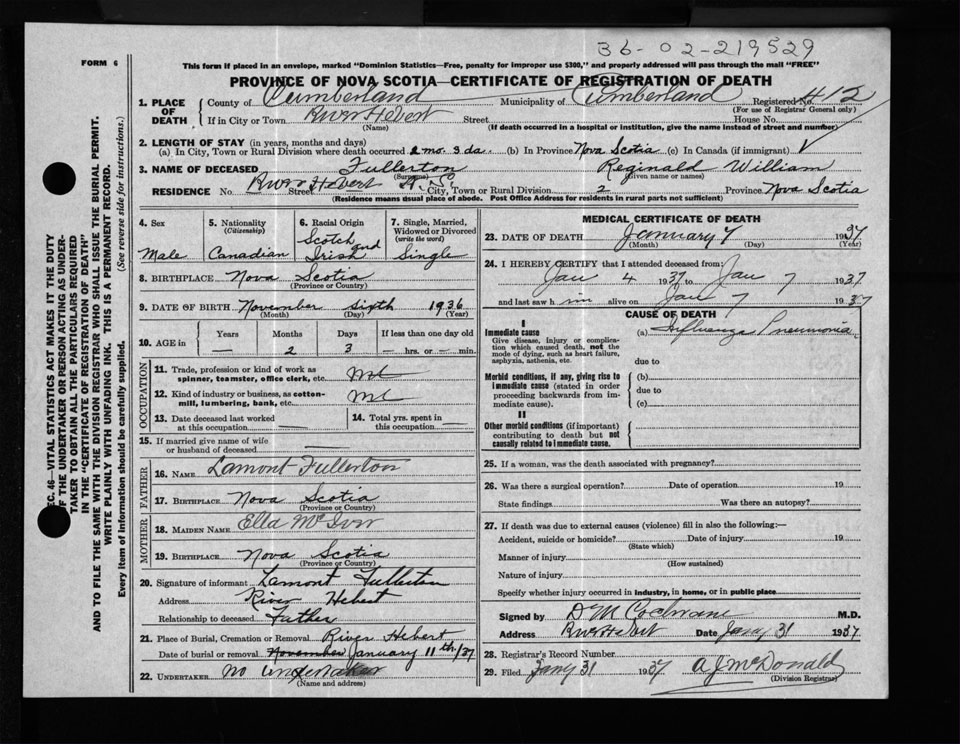 36-02-219529
FORM 6
This form if placed in an envelope, marked "Dominion Statistics—Free, penalty for improper use $300," and properly addressed will pass through the mail "FREE"
PROVINCE OF NOVA SCOTIA—CERTIFICATE OF REGISTRATION OF DEATH
1. PLACE OF DEATH County of Cumberland Municipality of Cumberland Registered No. 412
(For use of Registrar General only)
If in City or Town River Hebert Street House No.
(Name) (If death occurred in a hospital or institution, give the name instead of street and number)
2. LENGTH OF STAY (in years, months and days)
(a) In City, Town or Rural Division where death occurred 2 mo. 3 da. (b) In Province Nova Scotia (c) In Canada (if immigrant)
3. NAME OF DECEASED Fullerton Reginald William
(Surname) (Given name or names)
RESIDENCE No. Street River Hebert N.S. City, Town or Rural Division 2 Province Nova Scotia
(Residence means usual place of abode. Post Office Address for residents in rural parts not sufficient)
4. Sex 5. Nationality (Citizenship) 6. Racial Origin 7. Single, Married, Widowed or Divorced (write the word)
Male Canadian Scotch and Irish Single
8. BIRTHPLACE Nova Scotia
(Province or Country)
9. DATE OF BIRTH November Sixth 1936
(Month) (Day) (Year)
10. AGE in Years Months Days If less than one day old
— 2 3 — hrs. or — min.
OCCUPATION
11. Trade, profession or kind of work as spinner, teamster, office clerk, etc.
12. Kind of industry or business, as cotton-mill, lumbering, bank, etc.
13. Date deceased last worked at this occupation —
14. Total yrs. spent in this occupation —
15. If married give name of wife or husband of deceased —
FATHER
16. NAME Lamont Fullerton
17. BIRTHPLACE Nova Scotia
(Province or Country)
MOTHER
18. MAIDEN NAME Ella
19. BIRTHPLACE Nova Scotia
(Province or Country)
20. Signature of informant Lamont Fullerton
Address River Hebert
Relationship to deceased Father
21. Place of Burial, Cremation or Removal River Hebert
Date of burial or removal November January 11th/37
22. UNDERTAKER No Undertaker
(Name and address)
MEDICAL CERTIFICATE OF DEATH
23. DATE OF DEATH January 7 1937
(Month) (Day) (Year)
24. I HEREBY CERTIFY that I attended deceased from:
Jan 4 1937 to Jan 7 1937
and last saw him alive on Jan 7 1937
CAUSE OF DEATH
I
Immediate cause (a) Influenza Pneumonia
Give disease, injury or complication which caused death, not the mode of dying, such as heart failure, asphyxia, asthenia, etc.
due to
Morbid conditions, if any, giving rise to immediate cause (stated in order proceeding backwards from immediate cause).
(b)
due to
(c)
II
Other morbid conditions (if important) contributing to death but not causally related to immediate cause.
25. If a woman, was the death associated with pregnancy?
26. Was there a surgical operation? Date of operation 19
State findings Was there an autopsy?
27. If death was due to external causes (violence) fill in also the following:—
Accident, suicide or homicide? Date of injury 19
(State which)
Manner of injury
(How sustained)
Nature of injury
Specify whether injury occurred in industry, in home, or in public place
Signed by D M Cochrane M.D.
Address River Hebert Date Jany 31 1937
28. Registrar's Record Number
29. Filed Jany 31 1937 A J McDonald
(Division Registrar)
EC. 46—VITAL STATISTICS ACT MAKES IT THE DUTY
OF THE UNDERTAKER OR PERSON ACTING AS UNDER-
TAKER TO OBTAIN ALL THE PARTICULARS REQUIRED
IN THE "CERTIFICATE OF REGISTRATION OF DEATH"
AND TO FILE THE SAME WITH THE DIVISION REGISTRAR WHO SHALL ISSUE THE BURIAL PERMIT.
WRITE PLAINLY WITH UNFADING INK. THIS IS A PERMANENT RECORD.
Every item of information should be carefully supplied. (See reverse side for instructions.)